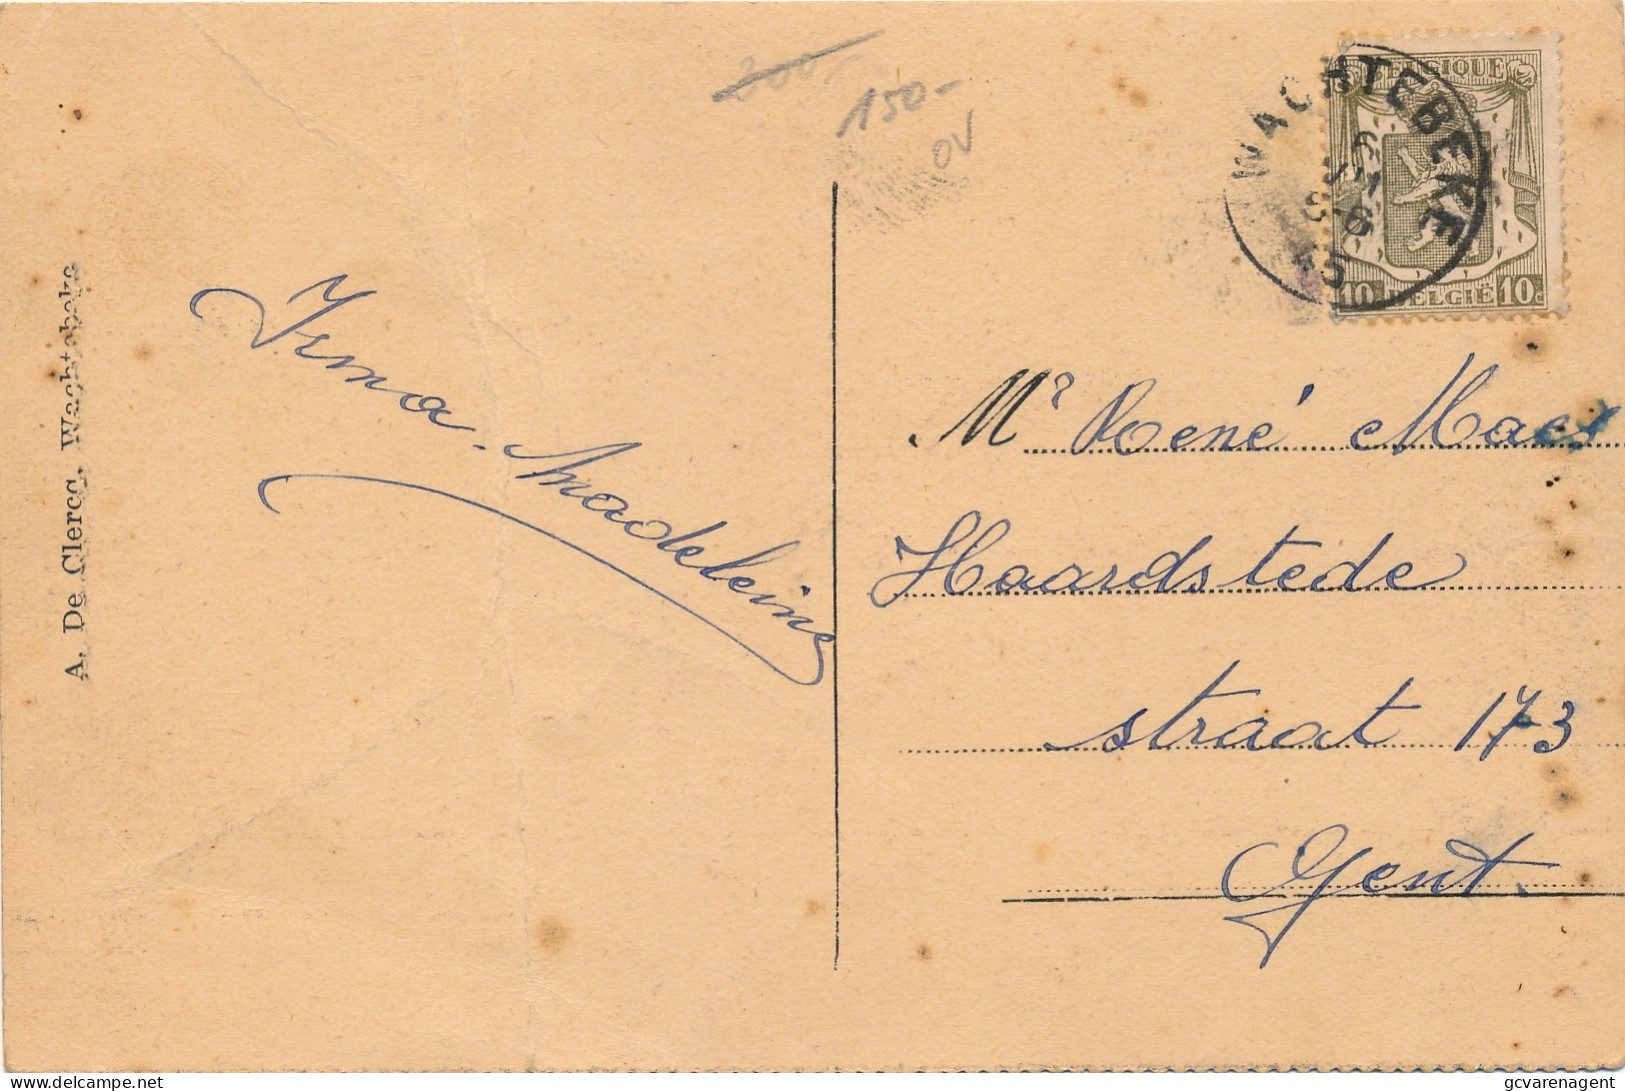 300,-
150-
OV
WACHTEBEKE
BELGIQUE
45
10c BELGIË 10c
A. De Clercq, Wachtebeke
Irma - Madeleine
Mr René Maes
Haardstede
straat 173
Gent.
delcampe.net
gcvarenagent